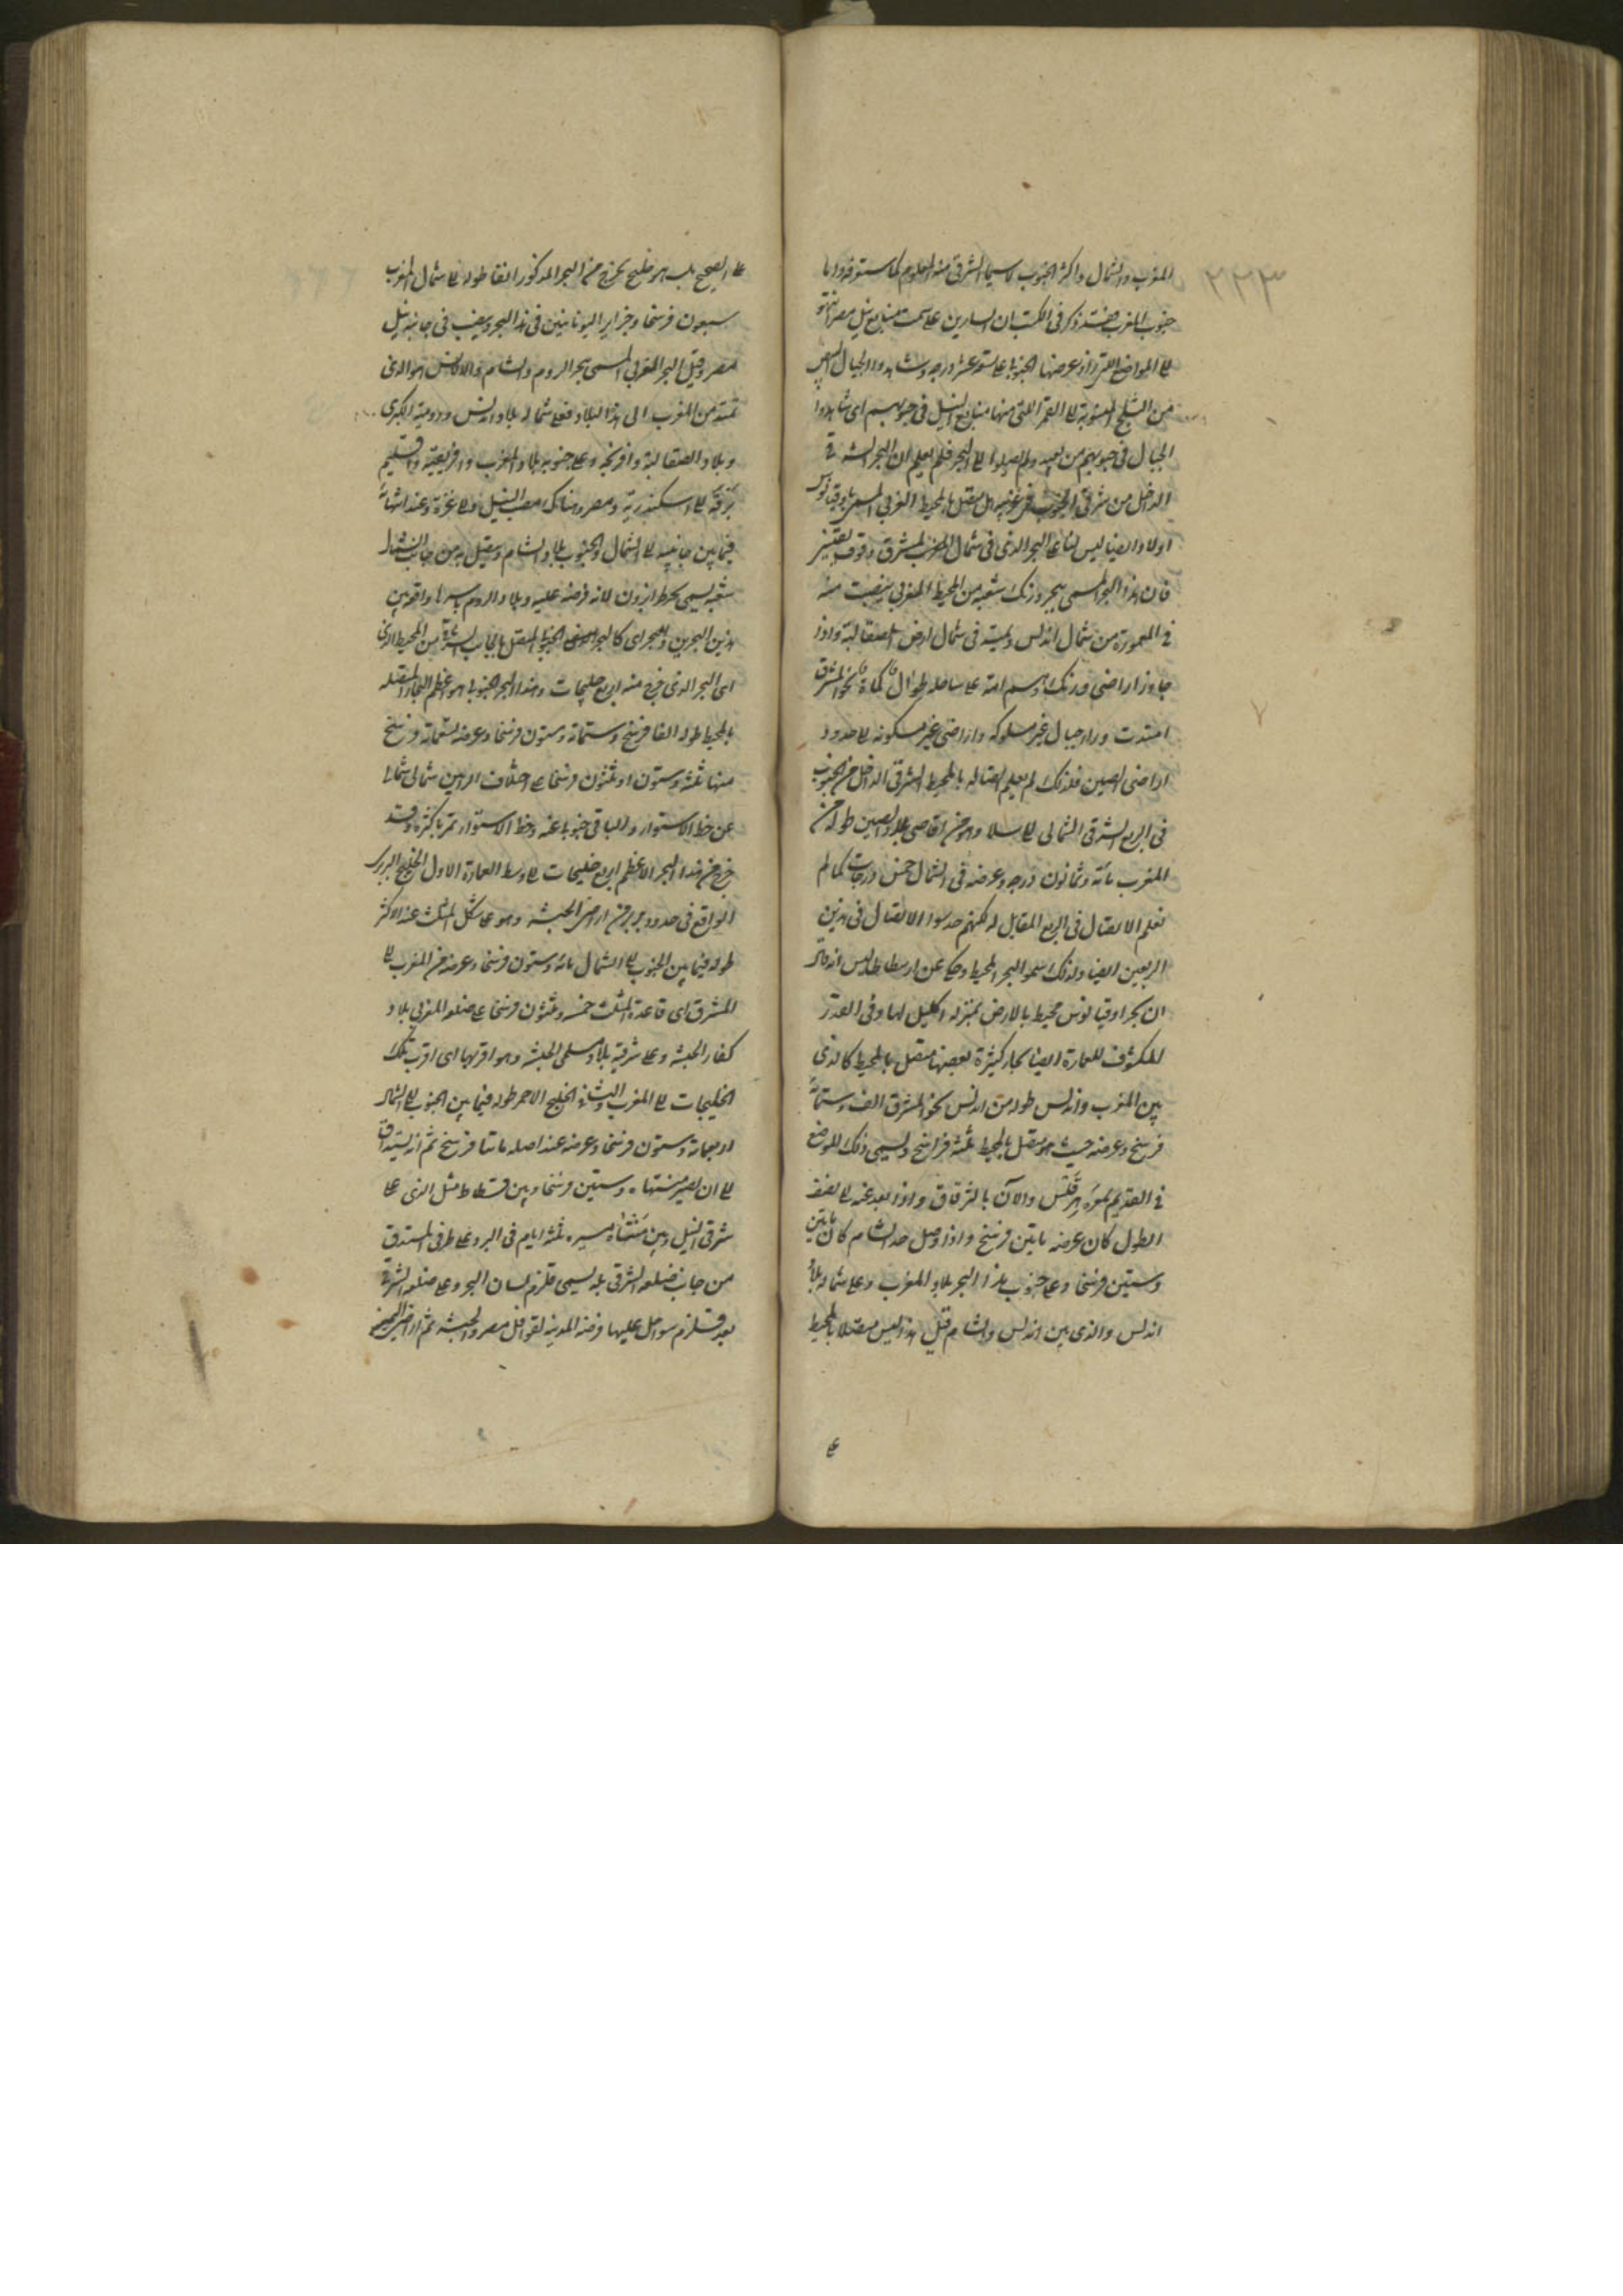 ٢٢٣
المغرب والشمال واكثر الجنوب لا سيما الشرقي منه المعلوم كما ستعرفه واما
جنوب المغرب فقد ذكر في الكتب ان السايرين على سمت منابع نيل مصر انتهوا
الى المواضع التي زاد عرضها الجنوبي على تسعة عشر درجة وشاهدوا الجبال
من الثلج المنسوبة الى القمر التي منها منابع النيل في جنوبهم اى شاهدوا
الجبال في جنوبهم من بعيد ولم يصلوا الى البحر فلم يعلم ان البحر الشرقي
الداخل من شرقي الجنوب في غربه هل متصل بالمحيط الغربي المسمى باوقيانوس
اولا وايضا ليس لنا على البحر الذي في شمال المشرق وقوف يقيني
فان هذا البحر المسمى ببحر ورنك شعبة من المحيط المغربي ينصب منه
في المعمورة من شمال اندلس ويمتد في شمال ارض الصقالبة واذا
جاوز اراضي ورنك وهم امة على ساحله طوال كماة نحو المشرق
امتدت وراء جبال غير مسلوكة واراضي غير مسكونة الى حدود
اراضي الصين فلذلك لم يعلم اتصاله بالمحيط الشرقي الداخل من الجنوب
في الربع الشرقي الشمالي الى سيلا وهو من اقاصي بلاد الصين طوله من
المغرب مائة وثمانون درجة وعرضه في الشمال خمس درجات كما لم
نعلم الاتصال في الربع المقابل له لكنهم حدسوا الاتصال في هذين
الربعين ايضا ولذلك سموا البحر المحيط وحكى عن ارسطاطاليس انه قال
ان بحر اوقيانوس محيط بالارض بمنزلة اكليل لها وفي القدر
المكشوف للعمارة ايضا بحار كثيرة بعضها متصل بالمحيط كالذي
بين المغرب واندلس طوله من اندلس نحو المشرق الف وستمائة
فرسخ وعرضه حيث هو متصل بالمحيط ثلثة فراسخ ويسمى ذلك الموضع
في القديم بموره هرقلس والآن بالزقاق واذا بعد عنه الى نصف
الطول كان عرضه مايتين فرسخ واذا وصل حد الشام كان مايتين
وستين فرسخا وعلى جنوب هذا البحر بلاد المغرب وعلى شماله بلاد
اندلس والذي بين اندلس والشام قيل هذا ليس متصلا بالمحيط
على
على الصحيح بل هو خليج يخرج من البحر المذكور انفا طوله الى شمال المغرب
سبعون فرسخا وجزاير اليونانيين في هذا البحر ويصب في جانبه نيل
مصر وقيل البحر المغربي المسمى ببحر الروم والشام والاندلس هو الذي
تمتد من المغرب الى هذا البلاد فعلى شماله بلاد اندلس ورومية الكبرى
وبلاد الصقالبة وافرنجه وعلى جنوبه بلاد المغرب وافريقية واقليم
برقة الى اسكندرية ومصر وهناك مصب النيل والى غزة وعند انتهائه
فيما بين جانبيه الى الشمال والجنوب بلاد الشام ويتصل به من جانب الشمال
شعبة يسمى بحر طرابزون لانه فرضة عليه وبلاد الروم باسرها واقعة بين
هذين البحرين والبحر اى كالبحر الجنوبي المتصل بالجانب الشرقي من المحيط الذي
اى البحر الذي خرج منه اربع خليجات وهذا البحر الجنوبي هو اعظم البحار المتصلة
بالمحيط طوله الفا فرسخ وستمائة وستون فرسخا وعرضه تسعمائة فرسخ
منها ثلثة وستون او ثلثون فرسخا على اختلاف الروايتين شمالي شمالا
عن خط الاستواء والباقي جنوبا عنه وخط الاستواء يمر باكثره وقد
خرج من هذا البحر الاعظم اربع خليجات الى وسط العمارة الاول الخليج البربري
الواقع في حدود بربر من اراضي الحبشة وهو على شكل المثلث عند الاكثر
طوله فيما بين الجنوب الى الشمال مائة وستون فرسخا وعرضه من المغرب الى
المشرق اى قاعدة المثلث خمسة وثلثون فرسخا على ضلعه المغربي بلاد
كفار الحبشة وعلى شرقيه بلاد مسلمي الحبشة وهو اقربها اى اقرب تلك
الخليجات الى المغرب والثاني الخليج الاحمر طوله فيما بين الجنوب الى الشمال
اربعمائة وستون فرسخا وعرضه عند اصله مائتا فرسخ ثم انه يستدق
الى ان يصير منتهاه وستين فرسخا وبين فسطاط مثل الذي على
شرقي النيل وبين منتهاه مسيرة ثلثة ايام في البر وعلى طرفه المستدق
من جانب ضلعه الشرقي بلد يسمى قلزم لسان البحر وعلى ضلعه الشرقي
بعد قلزم سواحل عليها فرضة المدينة لقوافل مصر والحبشة ثم اراضي اليمن